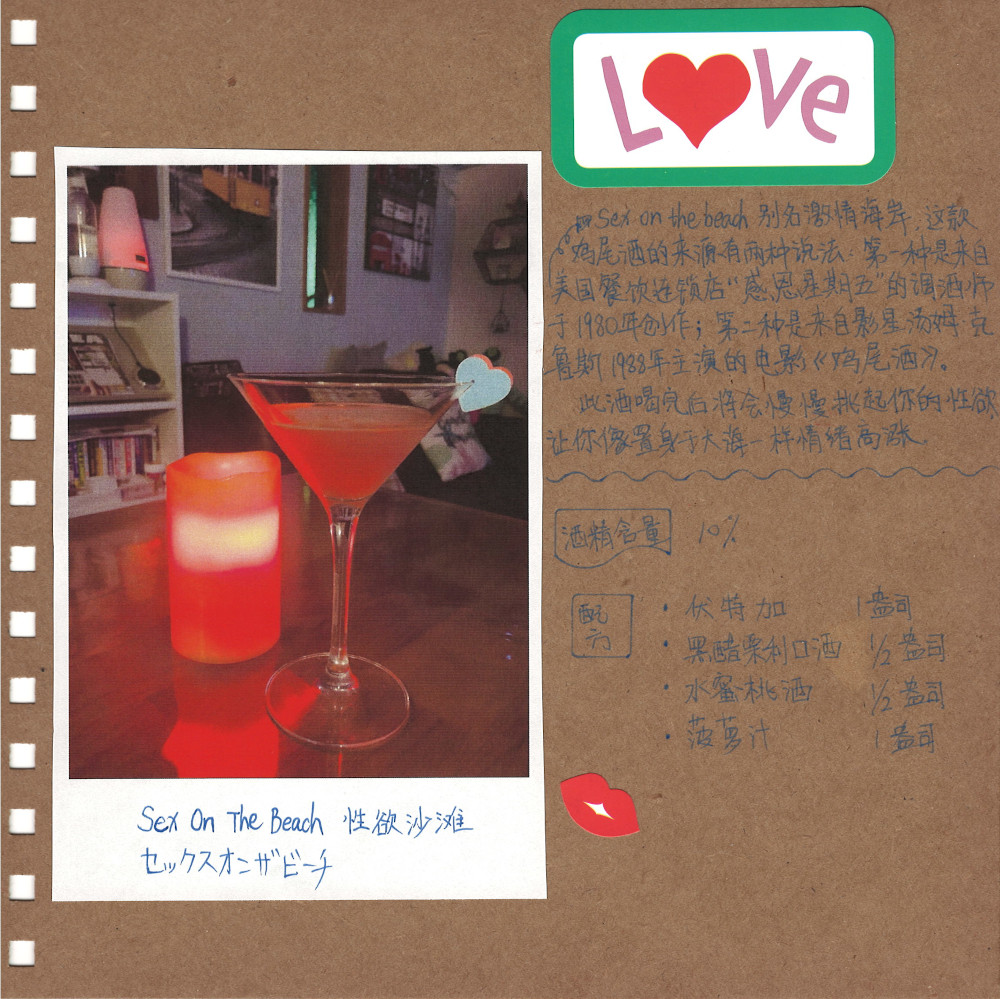 Love
Sex on the beach 别名激情海岸,这款
鸡尾酒的来源有两种说法:第一种是来自
美国餐饮连锁店“感恩星期五”的调酒师
于1980年创作;第二种是来自影星汤姆·克
鲁斯1988年主演的电影《鸡尾酒》。
此酒喝完后将会慢慢挑起你的性欲
让你像置身于大海一样情绪高涨.
酒精含量 10%
配方
• 伏特加 1盎司
• 黑醋栗利口酒 1/2盎司
• 水蜜桃酒 1/2盎司
• 菠萝汁 1盎司
Sex On The Beach 性欲沙滩
セックスオンザビーチ